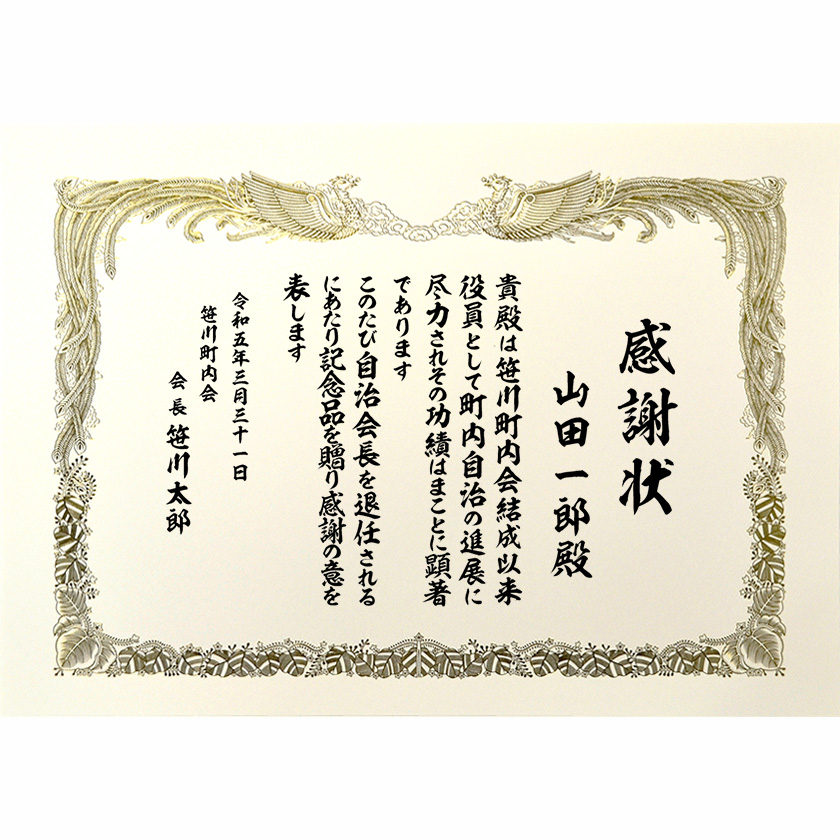 感謝状
山田一郎殿
貴殿は笹川町内会結成以来
役員として町内自治の進展に
尽力されその功績はまことに顕著
であります
このたび自治会長を退任される
にあたり記念品を贈り感謝の意を
表します
令和五年三月三十一日
笹川町内会
会長 笹川太郎